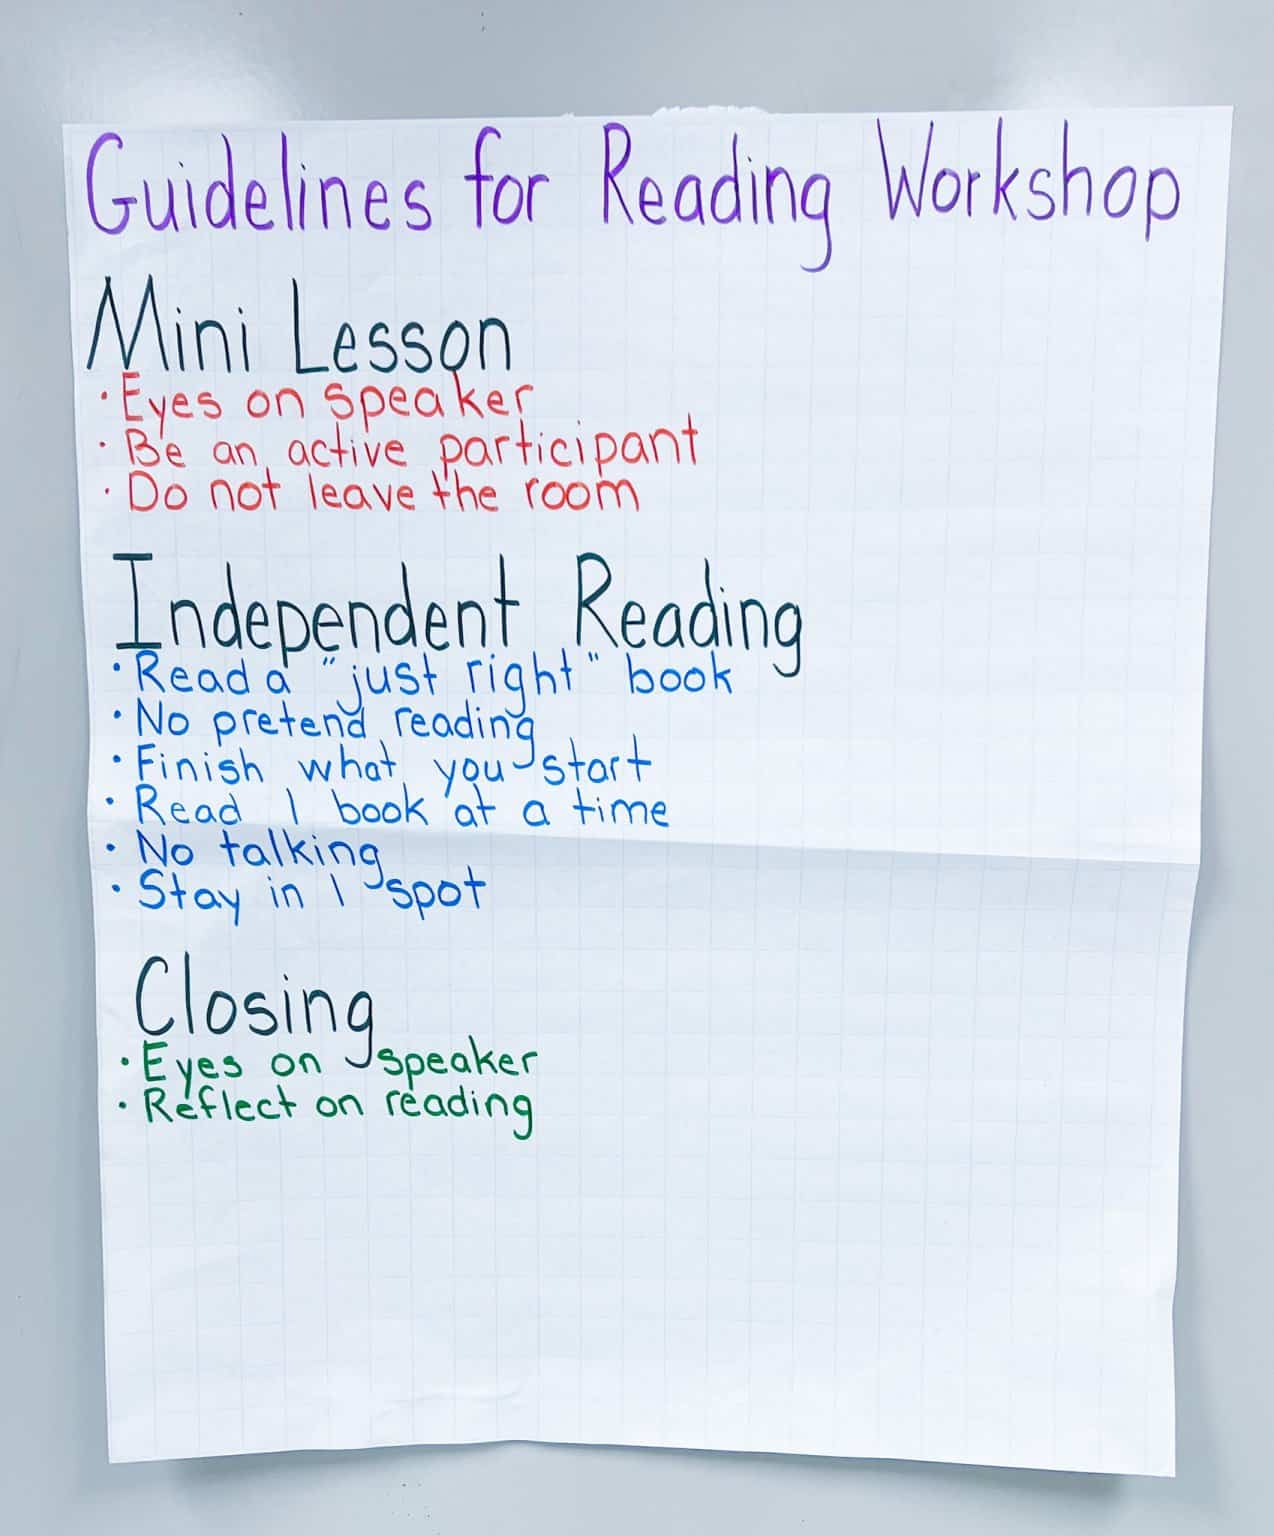 Guidelines for Reading Workshop
Mini Lesson
· Eyes on speaker
· Be an active participant
· Do not leave the room
Independent Reading
· Read a "just right" book
· No pretend reading
· Finish what you start
· Read 1 book at a time
· No talking
· Stay in 1 spot
Closing
· Eyes on speaker
· Reflect on reading